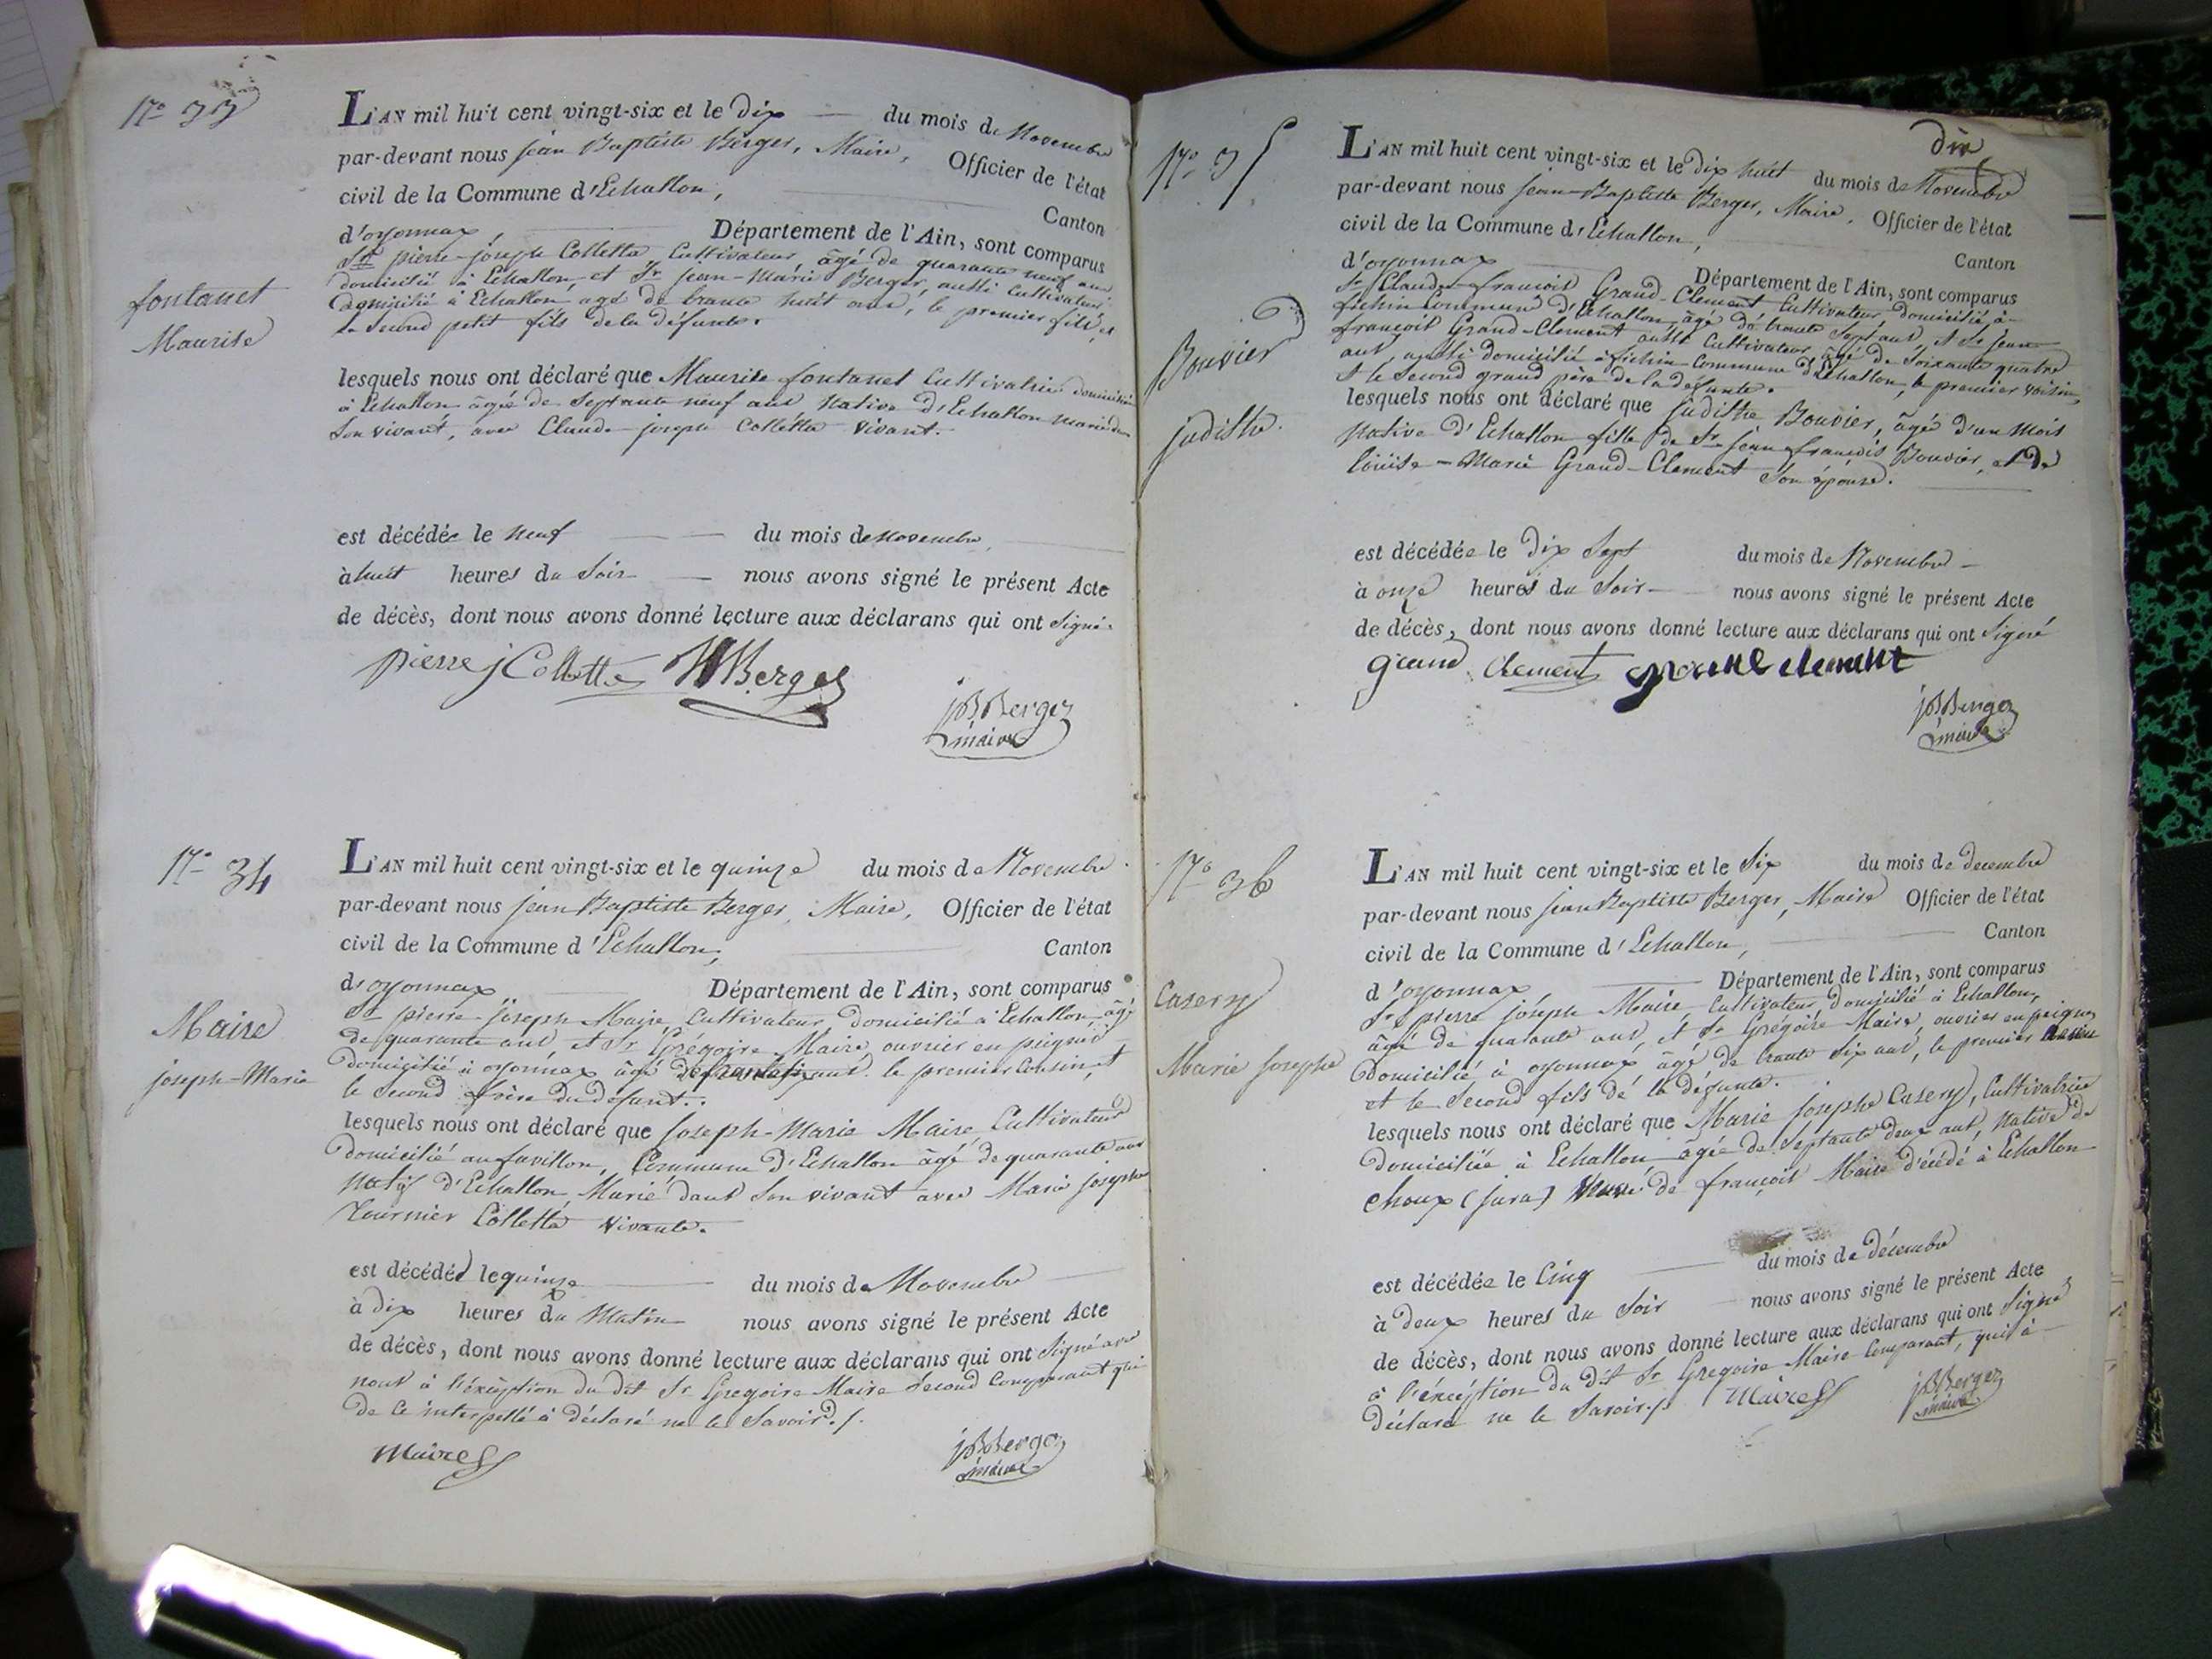 N.° 33
L'AN mil huit cent vingt-six et le dix du mois de Novembre
par-devant nous jean Baptiste Berger, Maire, Officier de l'état
civil de la Commune d'Echallon,
Canton
d'oyonnax, Département de l'Ain, sont comparus
Sr pierre-joseph Colletta Cultivateur, âgé de quarante neuf ans
domicilié à Echallon, et Sr Jean-Marie Berger, aussi Cultivateur
domicilié à Echallon agé de trente huit ans, le premier fils, et
le second petit fils de la défunte.
fontanet
Maurise
lesquels nous ont déclaré que Maurise fontanet Cultivatrice domiciliée
à Echallon âgée de septante neuf ans Native d'Echallon mariée dans
son vivant, avec Claude-joseph Colletta vivant.
est décédée le neuf du mois de novembre
à huit heures du soir nous avons signé le présent Acte
de décès, dont nous avons donné lecture aux déclarans qui ont signé.
pierre j Colletta JM Berger
jB Berger
maire
N.° 34
L'AN mil huit cent vingt-six et le quinze du mois de Novembre
par-devant nous jean Baptiste Berger, Maire, Officier de l'état
civil de la Commune d'Echallon, Canton
d'oyonnax Département de l'Ain, sont comparus
Sr pierre-joseph Maire, Cultivateur, domicilié à Echallon, âgé
de quarante ans, et Sr Grégoire Maire, ouvrier en peignes
domicilié à oyonnax, âgé de trente six ans le premier Cousin, et
le second frère du défunt.
Maire
joseph-Marie
lesquels nous ont déclaré que Joseph-Marie Maire Cultivateur
domicilié au favillon, Commune d'Echallon âgé de quarante ans
Natif d'Echallon, Marié dans son vivant avec Marie josephe
Tournier Colletta vivante.
est décédé le quinze du mois de Novembre
à dix heures du Matin nous avons signé le présent Acte
de décès, dont nous avons donné lecture aux déclarans qui ont signé avec
nous à l'éxception du dit Sr Gregoire Maire second Comparant qui
de ce interpellé à déclaré ne le savoir./.
Maire
jB Berger
maire
dix
N.° 35
L'AN mil huit cent vingt-six et le dix huit du mois de Novembre
par-devant nous Jean-Baptiste Berger, Maire, Officier de l'état
civil de la Commune d'Echallon,
Canton
d'oyonnax Département de l'Ain, sont comparus
Sr Claude-françois Grand-Clement Cultivateur, domicilié à
fichin Commune d'Echallon, âgé de trente sept ans, et Sr jean
françois Grand-Clement aussi Cultivateur, âgé de soixante quatre
ans, aussi domicilié à fichin Commune d'Echallon, le premier voisin,
et le second grand père de la défunte.
Bouvier
judithe.
lesquels nous ont déclaré que judithe Bouvier, âgée d'un mois
Native d'Echallon fille de Sr jean françois Bouvier, et de
loüise-Marie Grand-Clement son épouse.
est décédée le dix sept du mois de Novembre
à onze heures du soir nous avons signé le présent Acte
de décès, dont nous avons donné lecture aux déclarans qui ont signé
grand Clement grand clement
jB Berger
maire
N.° 36
L'AN mil huit cent vingt-six et le six du mois de decembre
par-devant nous jean Baptiste Berger, Maire Officier de l'état
civil de la Commune d'Echallon, Canton
d'oyonnax Département de l'Ain, sont comparus
Sr pierre joseph Maire, Cultivateur, domicilié à Echallon,
âgé de quarante ans, et Sr Grégoire Maire, ouvrier en peignes
domicilié à oyonnax, âgé de trente six ans, le premier
et le second fils de la défunte.
Casery
Marie Josephe
lesquels nous ont déclaré que Marie josephe Casery, Cultivatrice
domiciliée à Echallon âgée de septante deux ans, Native de
Choux (jura) de françois Maire décédé à Echallon
est décédée le Cinq du mois de décembre
à deux heures du soir nous avons signé le présent Acte
de décès, dont nous avons donné lecture aux déclarans qui ont signé
à l'éxception du dit Sr Gregoire Maire Comparant, qui à
déclaré ne le savoir./. Maire
jB Berger
maire